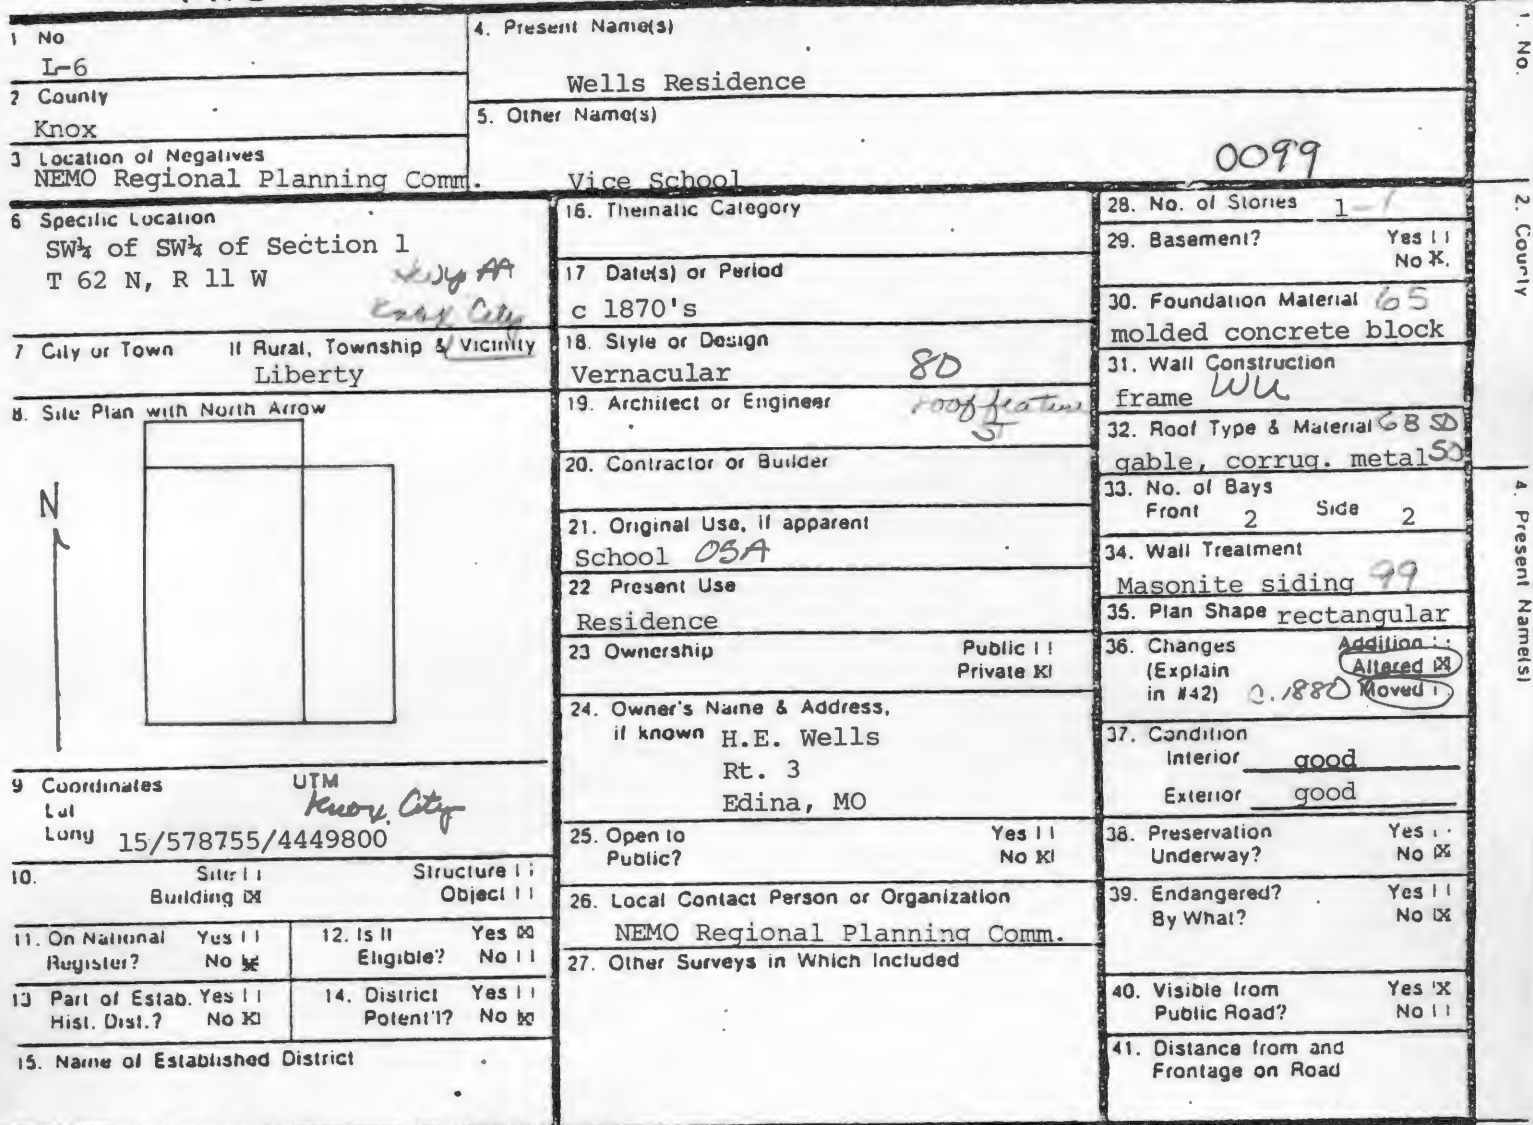 1 No
L-6
2 County
Knox
3 Location of Negatives
NEMO Regional Planning Comm.
4. Present Name(s)
Wells Residence
5. Other Name(s)
0099
Vice School
6 Specific Location
SW¼ of SW¼ of Section 1
T 62 N, R 11 W
Hwy AA
Knox City
7 City or Town If Rural, Township & Vicinity
Liberty
8. Site Plan with North Arrow
N
9 Coordinates UTM
Lat
Knox City
Long 15/578755/4449800
10. Site Structure
Building X Object
11. On National Yes
Register? No X
12. Is It Yes X
Eligible? No
13 Part of Estab. Yes
Hist. Dist.? No X
14. District Yes
Potent'l? No X
15. Name of Established District
16. Thematic Category
17 Date(s) or Period
c 1870's
18. Style or Design
Vernacular 80
19. Architect or Engineer
roof feature
ST
20. Contractor or Builder
21. Original Use, if apparent
School 05A
22 Present Use
Residence
23 Ownership Public
Private X
24. Owner's Name & Address,
if known H.E. Wells
Rt. 3
Edina, MO
25. Open to Yes
Public? No X
26. Local Contact Person or Organization
NEMO Regional Planning Comm.
27. Other Surveys in Which Included
28. No. of Stories 1
29. Basement? Yes
No X
30. Foundation Material 65
molded concrete block
31. Wall Construction
frame WU
32. Roof Type & Material GB SD
gable, corrug. metal
33. No. of Bays
Front 2 Side 2
34. Wall Treatment
Masonite siding 99
35. Plan Shape rectangular
36. Changes Addition
(Explain Altered X
in #42) c. 1880 Moved
37. Condition
Interior good
Exterior good
38. Preservation Yes
Underway? No X
39. Endangered? Yes
By What? No X
40. Visible from Yes X
Public Road? No
41. Distance from and
Frontage on Road
1. No.
2. County
4. Present Name(s)